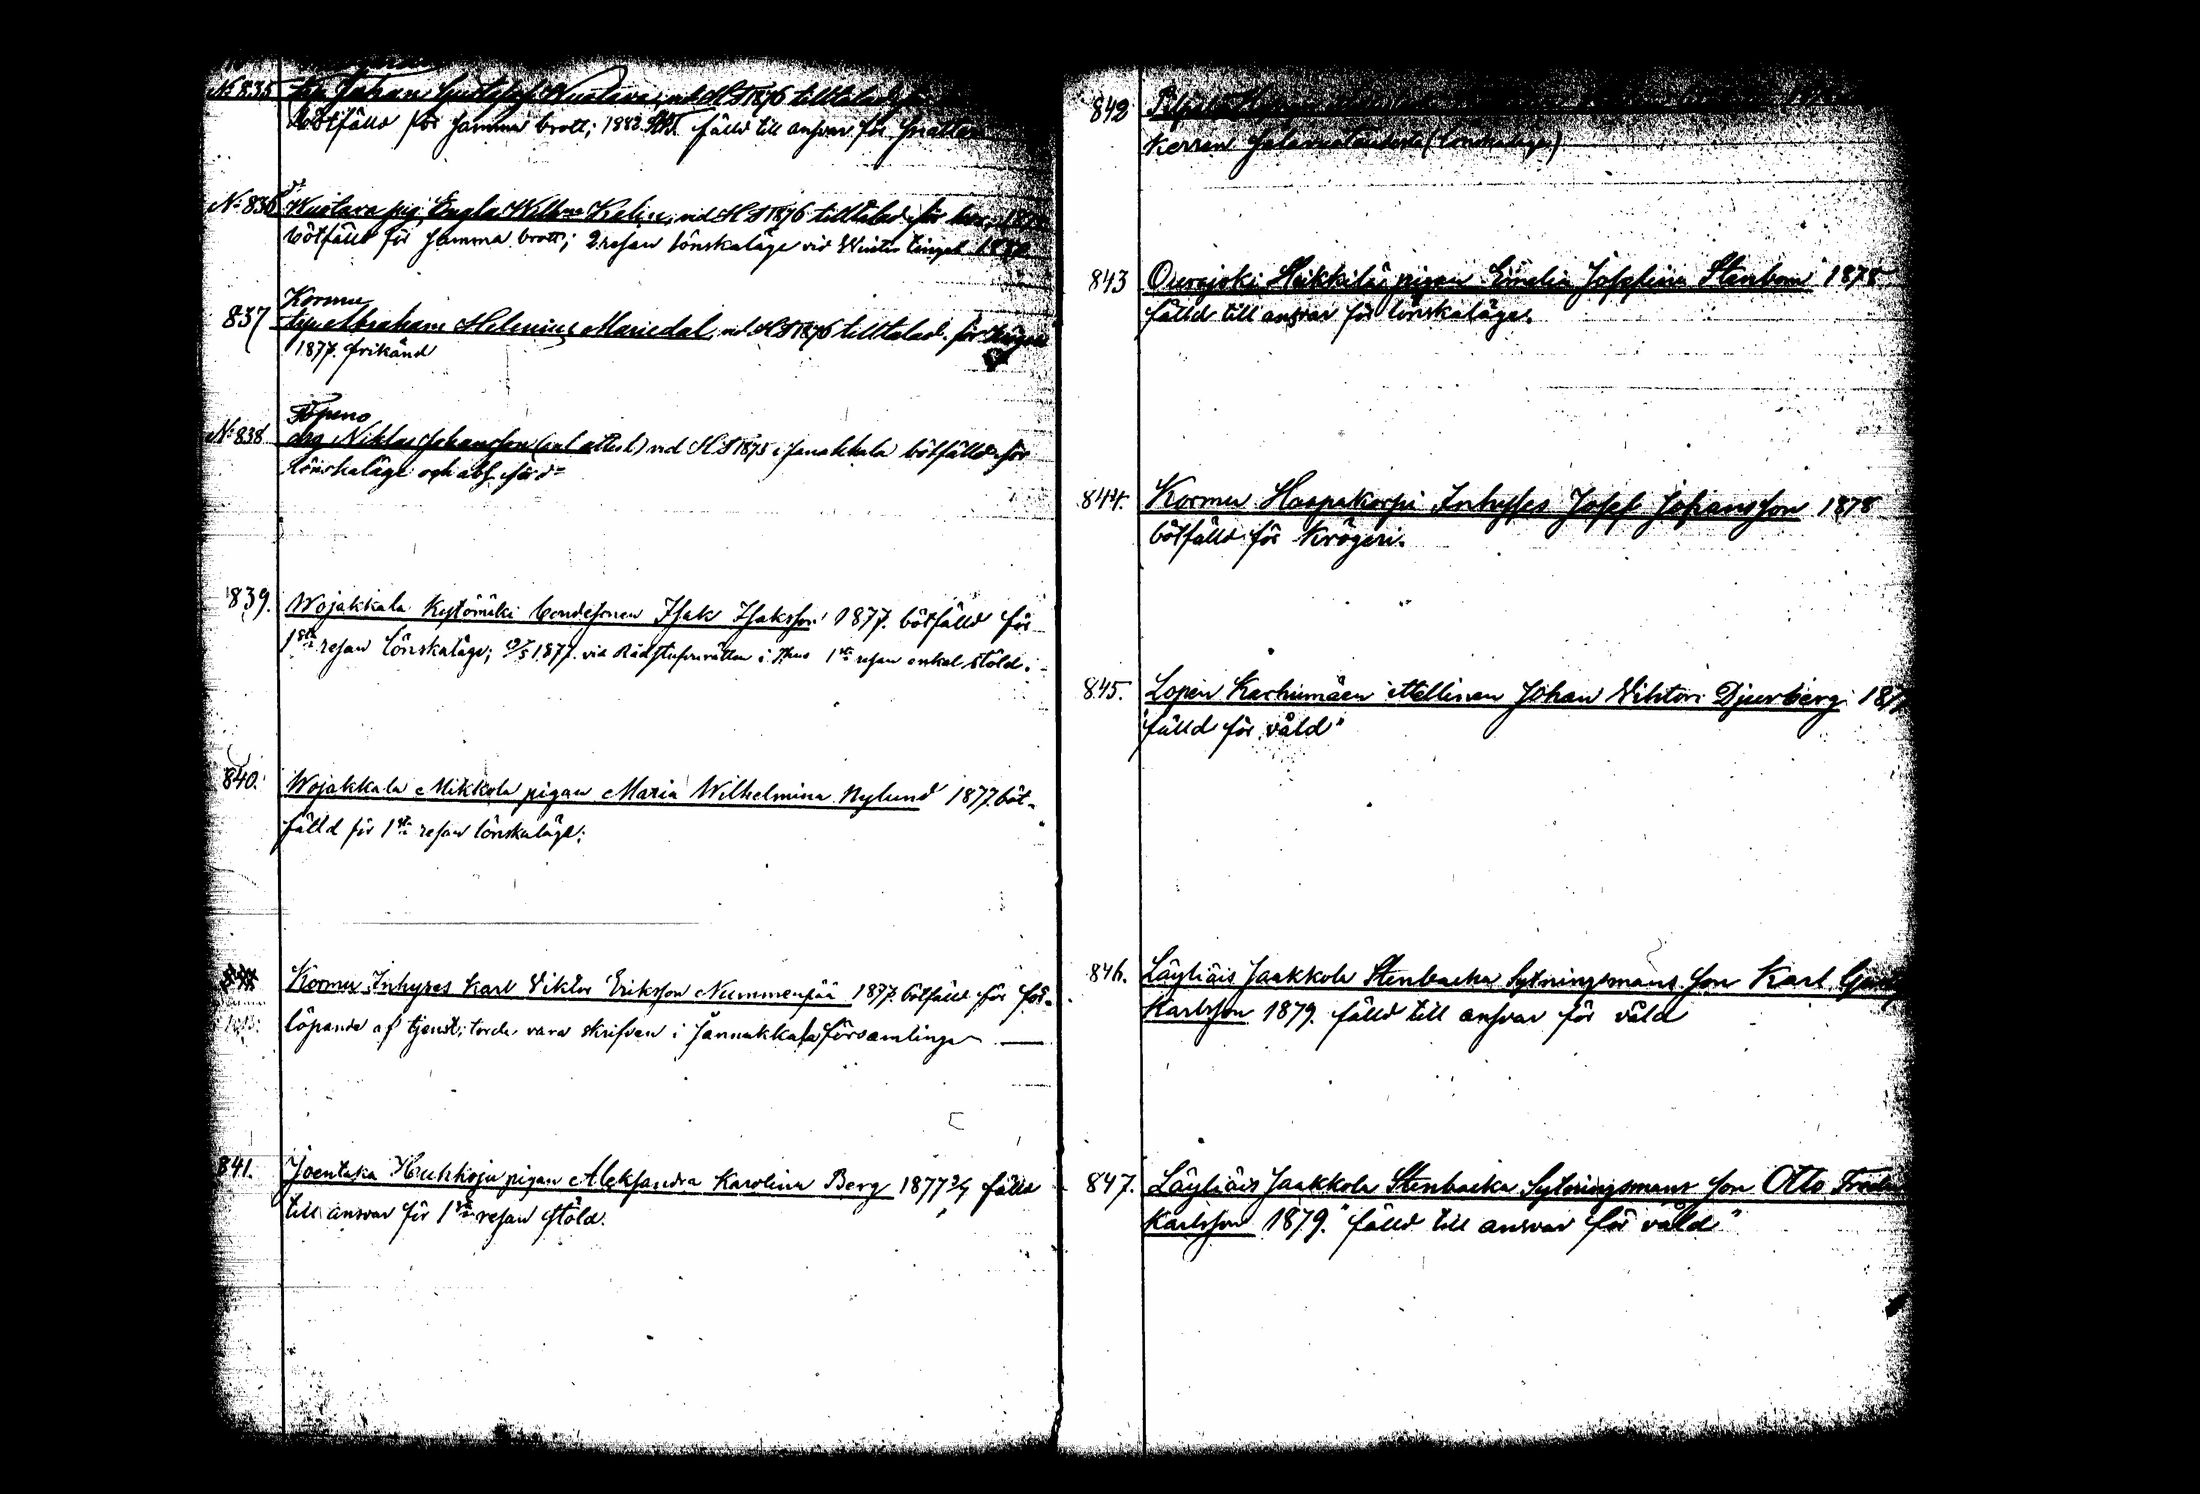 No 835 Johan Gustafsson Kuotava, vid HT 1876 tilltalad
bötfälld för samma brott; 1882 HT. fälld till ansvar för snatteri
No 836 Kuotava pig. Engla Wilh:na Kalin, vid HT 1876 tilltalad för
bötfälld för samma brott; 2 resan lönskaläge vid Winter tinget
Kormu
837 Abraham Helenius Mariedal, vid HT 1876 tilltalad för
1877. frikänd
Topeno
No 838 drg Niklas Johansson vid HT 1875 i Janakkala bötfälld för
lönskaläge och abs. förd
839. Wojakkala Kystömäki bondesonen Isak Isaksson 1877. bötfälld för
1sta resan lönskaläge; 1877. vid Rådstufvurätten i Thus 1sta resan enkel stöld.
840. Wojakkala Mikkola pigan Maria Wilhelmina Nylund 1877 böt-
fälld för 1sta resan lönskaläge;
Kormu Inhyses Karl Viktor Eriksson Nummenpää 1877. bötfälld för för-
löpande af tjenst; torde vara skrifven i Jannakkala församling
841. Joentaka Huhkoja pigan Aleksandra Karolina Berg 1877 fälld
till ansvar för 1sta resan stöld.
842
Kerran salavuoteudesta (lönskaläge)
843 Ourajoki Heikkilä pigan Emelia Josefina Stenbom 1878
fälld till ansvar för lönskaläge.
844. Kormu Haapakorpi Inhyses Josef Johansson 1878
bötfälld för Krögeri.
845. Lopen Karhumäen itellinen Johan Vihtori Djurberg
"fälld för våld"
846. Läyliäis Jaakkola Stenbacka Sytningsmans son Karl
Karlsson 1879. fälld till ansvar för våld
847. Läyliäis Jaakkola Stenbacka Sytningsmans son Otto
Karlsson 1879. "fälld till ansvar för våld"